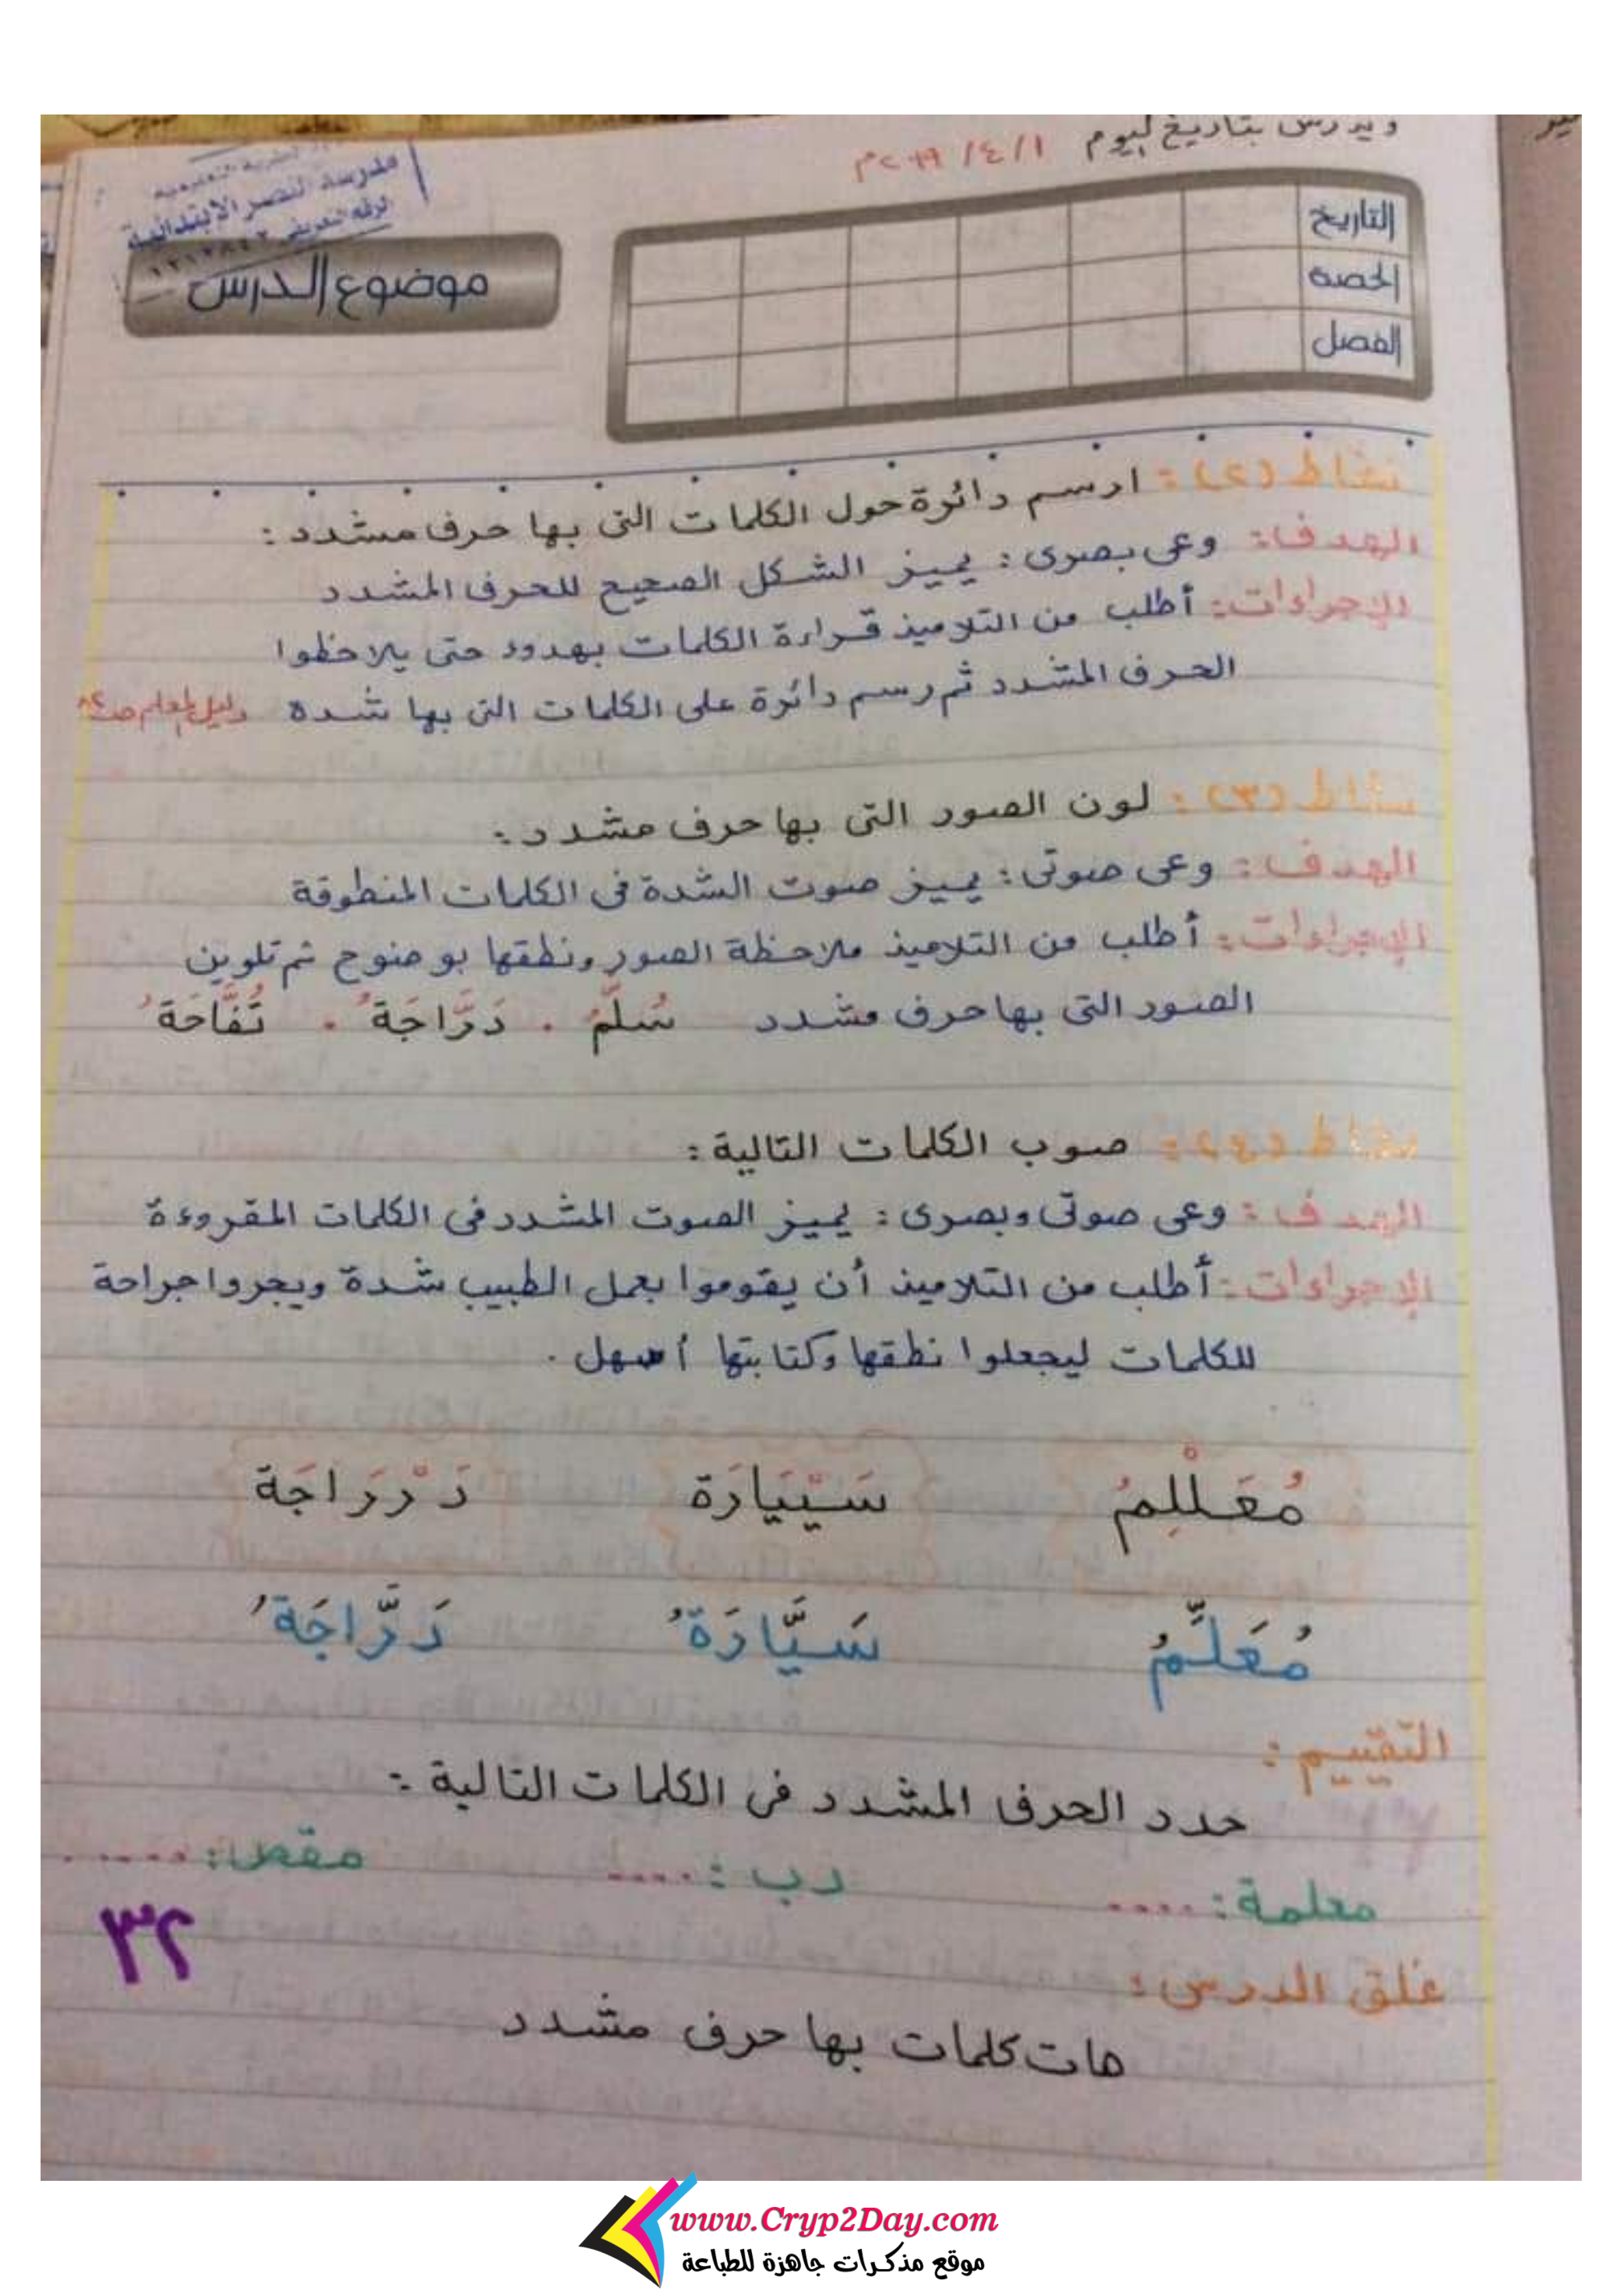 ويدرس بتاريخ ليوم ١ / ٤ / ٢٠١٩م
مدرسة النصر الابتدائية
التاريخ
الحصة
الفصل
موضوع الدرس
نشاط (٢) : ارسم دائرة حول الكلمات التى بها حرف مشدد :
الهدف : وعى بصرى : يميز الشكل الصحيح للحرف المشدد
الإجراءات : أطلب من التلاميذ قراءة الكلمات بهدوء حتى يلاحظوا
الحرف المشدد ثم رسم دائرة على الكلمات التى بها شدة دليل المعلم ص
نشاط (٣) : لون الصور التى بها حرف مشدد :
الهدف : وعى صوتى : يميز صوت الشدة فى الكلمات المنطوقة
الإجراءات : أطلب من التلاميذ ملاحظة الصور ونطقها بوضوح ثم تلوين
الصور التى بها حرف مشدد سُلَّمُ . دَرَّاجَةُ . تُفَّاحَةُ
نشاط (٤) : صوب الكلمات التالية :
الهدف : وعى صوتى وبصرى : يميز الصوت المشدد فى الكلمات المقروءة
الإجراءات : أطلب من التلاميذ أن يقوموا بعمل الطبيب شدة ويجروا جراحة
للكلمات ليجعلوا نطقها وكتابتها أسهل .
مُعَلْلِمُ سَيْيَارَة دَرْرَاجَة
مُعَلِّمُ سَيَّارَةُ دَرَّاجَةُ
التقييم :
حدد الحرف المشدد فى الكلمات التالية :
معلمة : .... رب : .... مقص : ......
غلق الدرس :
هات كلمات بها حرف مشدد
٣٢
www.Cryp2Day.com
موقع مذكرات جاهزة للطباعة